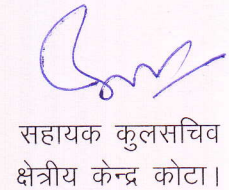 सहायक कुलसचिव
क्षेत्रीय केन्द्र कोटा।